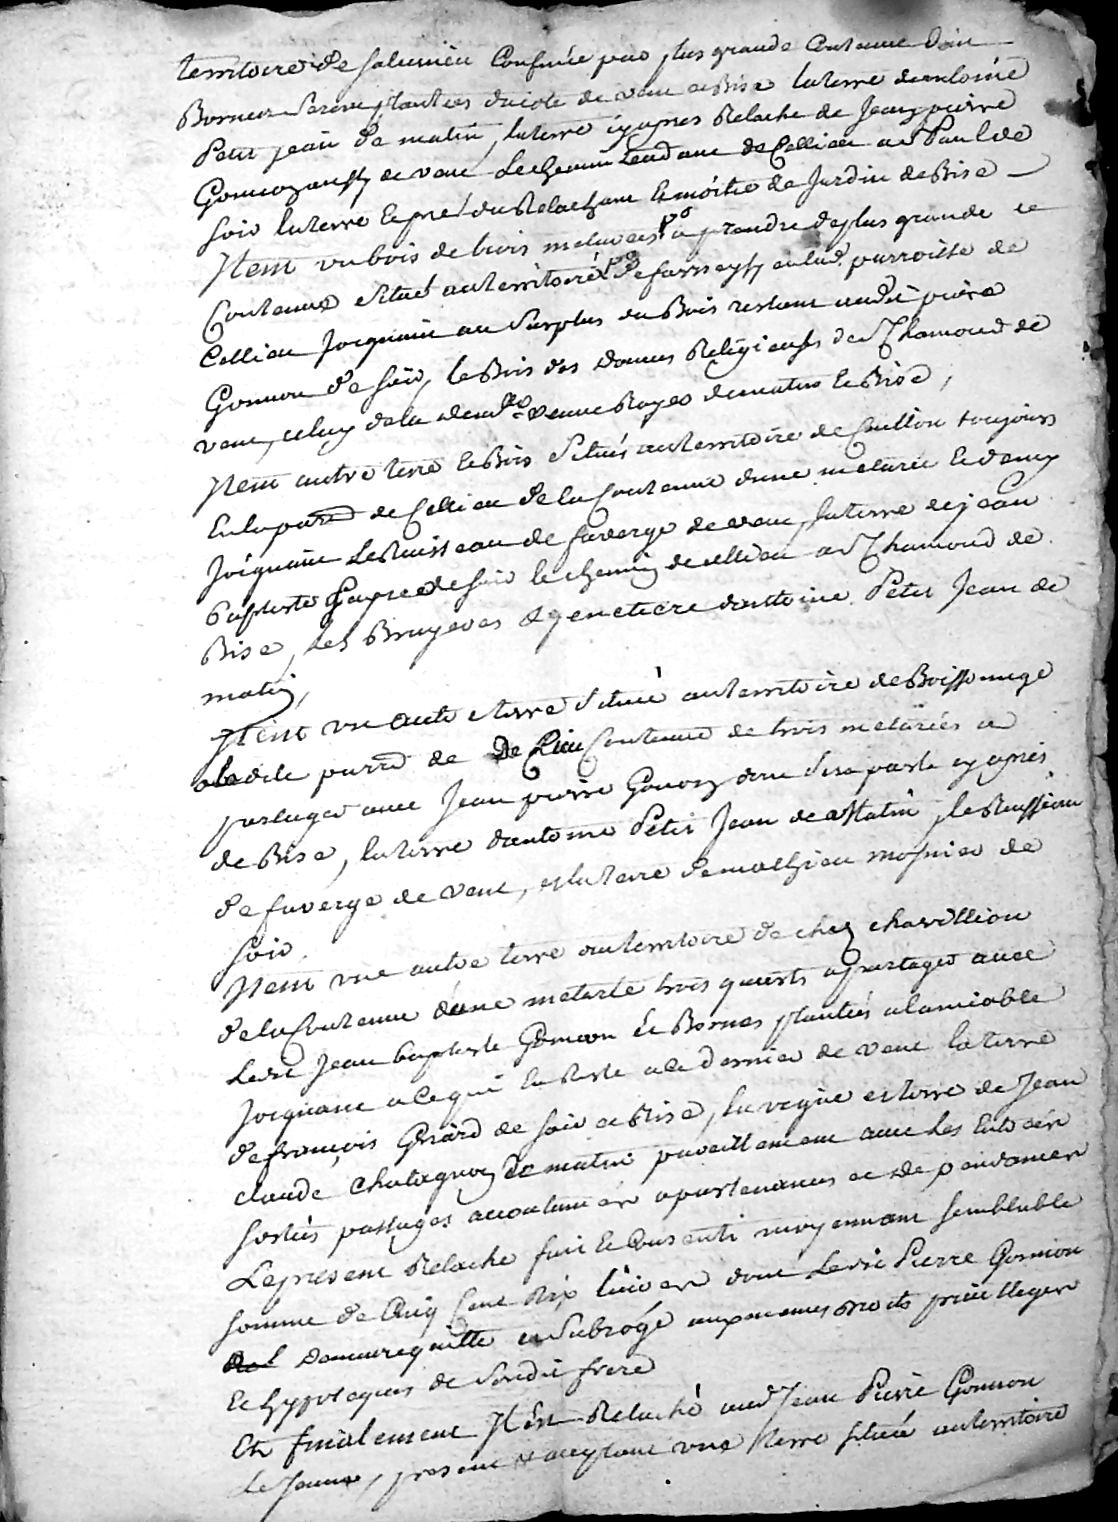 territoire de salumieu Confinée par plus grande Contenue dont
Bornes seront plantées du coté de vent et Bise la terre dantoine
Petit jean de matin, la terre cy apres Relaché de Jean pierre
Gonnon de vent le chemin tendant de Cellieu a St Paul de
soir la terre et pré du Relachant le moitie de Jardin de Bise
Item un bois de trois meturées a prendre de plus grande
Contenue situé au territoire de en lad. parroisse de
Cellieu Joignant au surplus du Bois restant audit pierre
Gonnon de soir, le Bois des dames Religieuses de St Chamond de
vent, celuy de la veuve Royer de matin et Bise,
Item autre terre et Bois situés au territoire de toujours
En la parr. de Cellieu de la Contenue dune meturée et demy
Joignant le Ruisseau de faverge de vent, la terre de jean
Baptiste de soir le chemin de cellieu a St Chamond de
Bise, les Bruyeres et genetiere dantoine Petit Jean de
matin,
Item une autre terre située au territoire de Boissonnage
dite parr. de Cellieu Contenue de trois meturées a
partager avec Jean pierre Gonon dont sera parlé cy apres
de Bise, la terre dantoine Petit Jean de Matin, le Ruisseau
de faverge de vent, et la terre de mathieu mosnier de
soir.
Item une autre terre au territoire de chez chavillion
de la Contenue dune meturée trois quarts a partager avec
Ledit Jean baptiste Gonnon et Bornes plantées a lamiable
Joignant a ce qui en Reste a ce dernier de vent la terre
de françois Girard de soir et Bise, la vigne et terre de Jean
claude Chatagnon de matin pareillement avec les Entrées
sorties passages accoutumées apartenances et dependances
Le present Relache fait et Consenti moyennant semblable
somme de Cinq Cent dix livres dont Ledit Pierre Gonnon
Demeure quitte et subrogé aux memes droits privilleges
Et hypoteques de sondit frere
Et finalement Il est Relaché aud. Jean Pierre Gonnon
Le Jeune, present et acceptant une terre située au territoire